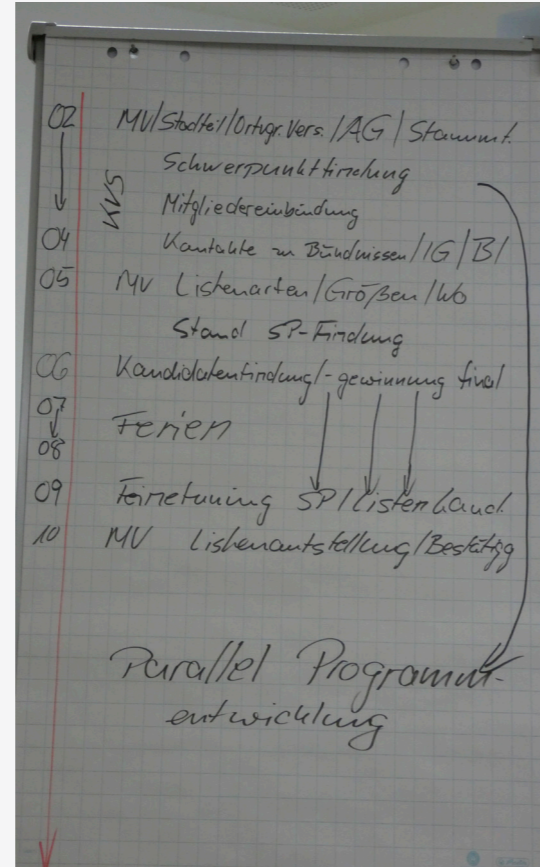 02 MV/Stadtteil/Ortsgr. Vers. /AG/Stammt.
Schwerpunktfindung
KVS
Mitgliedereinbindung
04 Kontakte zu Bündnissen/IG/BI
05 MV Listenarten/Größen/Wo
Stand SP-Findung
06 Kandidatenfindung/-gewinnung final
07
Ferien
08
09 Feinetuning SP/Listenkand.
10 MV Listenaufstellung/Bestätigg
Parallel Programm-
entwicklung